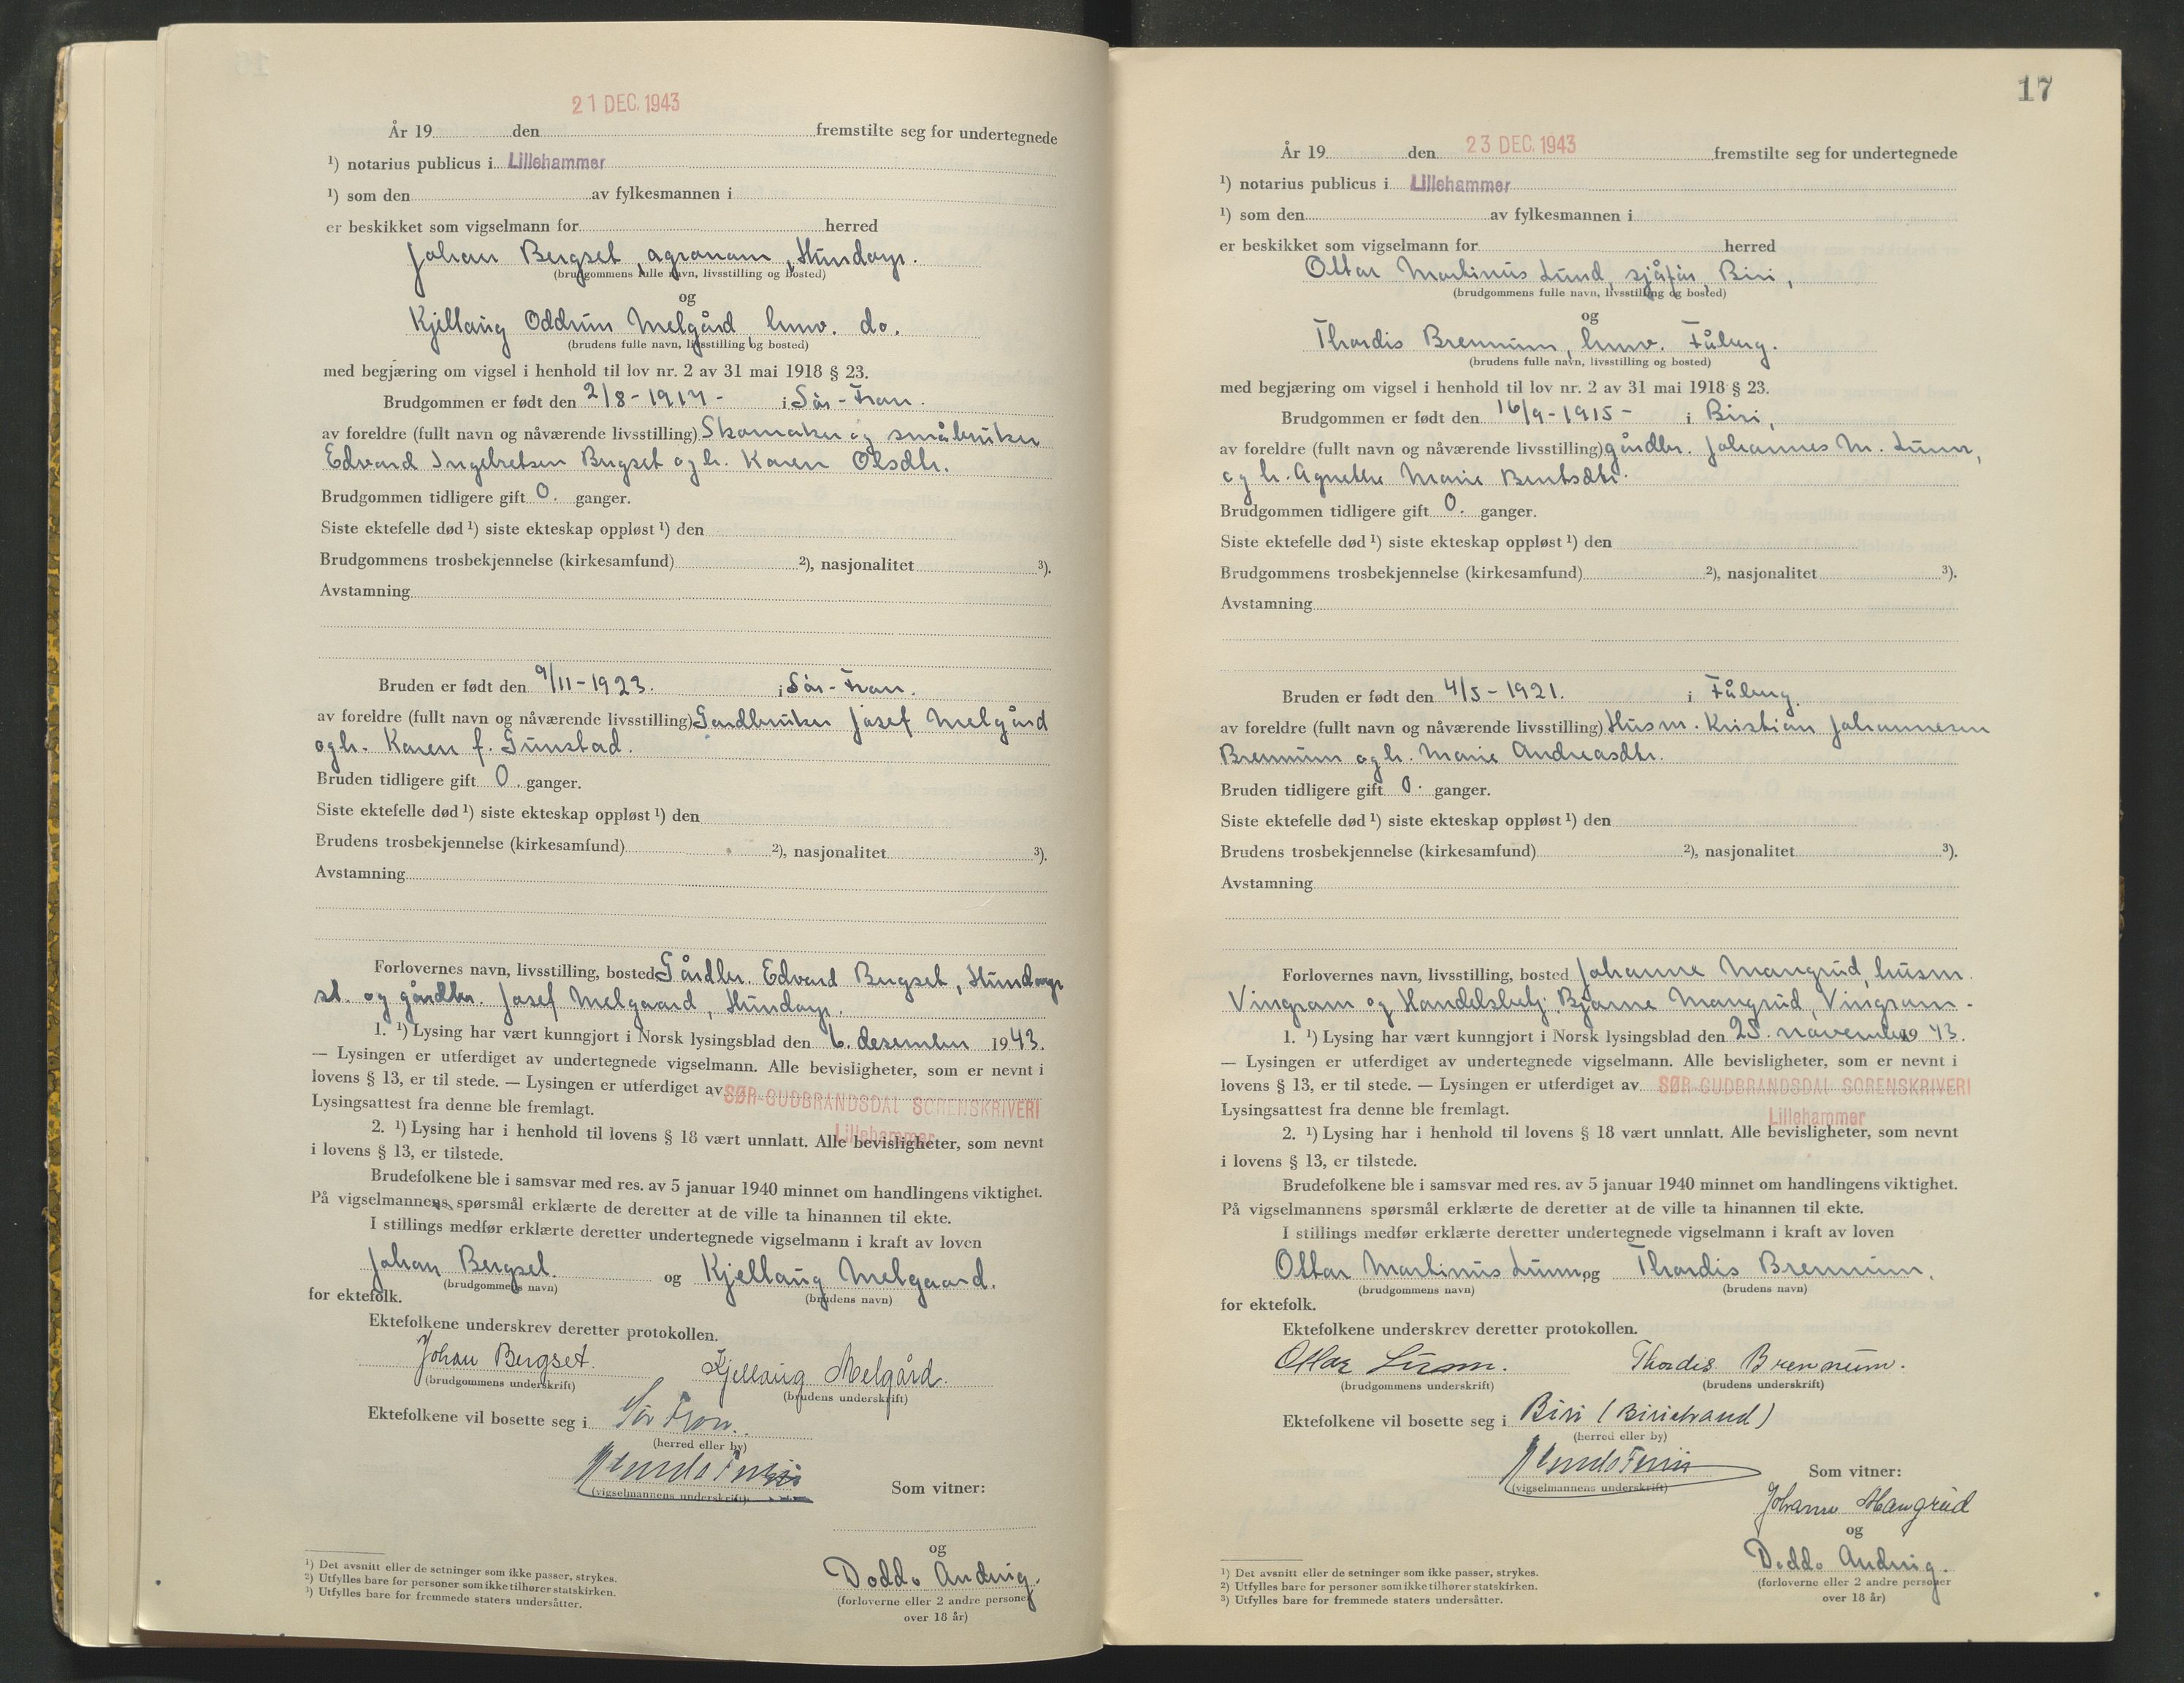 21 DEC. 1943
År 19 den fremstilte seg for undertegnede
¹) notarius publicus i Lillehammer
¹) som den av fylkesmannen i
er beskikket som vigselmann for herred
Johan Bergset, agronom, Hundorp.
(brudgommens fulle navn, livsstilling og bosted)
og
Kjellaug Oddrun Melgård husv. do.
(brudens fulle navn, livsstilling og bosted)
med begjæring om vigsel i henhold til lov nr. 2 av 31 mai 1918 § 23.
Brudgommen er født den 2/8-1917- i Sør-Fron.
av foreldre (fullt navn og nåværende livsstilling) Skomaker og småbruker
Edvard Ingebretsen Bergset og h. Karen Olsdtr.
Brudgommen tidligere gift 0. ganger.
Siste ektefelle død ¹) siste ekteskap oppløst ¹) den
Brudgommens trosbekjennelse (kirkesamfund) ²), nasjonalitet ³).
Avstamning
Bruden er født den 9/11-1923. i Sør-Fron.
av foreldre (fullt navn og nåværende livsstilling) Gardbruker Josef Melgård
og h. Karen f. Gunstad.
Bruden tidligere gift 0. ganger.
Siste ektefelle død ¹) siste ekteskap oppløst ¹) den
Brudens trosbekjennelse (kirkesamfund) ²), nasjonalitet ³).
Avstamning
Forlovernes navn, livsstilling, bosted Gårdbr. Edvard Bergset, Hundorp
st. og gårdbr. Josef Melgaard, Hundorp.
1. ¹) Lysing har vært kunngjort i Norsk lysingsblad den 6. desember 1943.
— Lysingen er utferdiget av undertegnede vigselmann. Alle bevisligheter, som er nevnt i
lovens § 13, er til stede. — Lysingen er utferdiget av SØR-GUDBRANDSDAL SORENSKRIVERI
Lysingsattest fra denne ble fremlagt.
Lillehammer
2. ¹) Lysing har i henhold til lovens § 18 vært unnlatt. Alle bevisligheter, som nevnt
i lovens § 13, er tilstede.
Brudefolkene ble i samsvar med res. av 5 januar 1940 minnet om handlingens viktighet.
På vigselmannens spørsmål erklærte de deretter at de ville ta hinannen til ekte.
I stillings medfør erklærte deretter undertegnede vigselmann i kraft av loven
Johan Bergset. og Kjellaug Melgaard.
(brudgommens navn) (brudens navn)
for ektefolk.
Ektefolkene underskrev deretter protokollen.
Johan Bergset. Kjellaug Melgård.
(brudgommens underskrift) (brudens underskrift)
Ektefolkene vil bosette seg i Sør Fron.
(herred eller by)
(vigselmannens underskrift)
Som vitner:
og
Doddo Andvig.
(forloverne eller 2 andre personer
over 18 år)
¹) Det avsnitt eller de setninger som ikke passer, strykes.
²) Utfylles bare for personer som ikke tilhører statskirken.
³) Utfylles bare for fremmede staters undersåtter.
17
År 19 den 23 DEC. 1943 fremstilte seg for undertegnede
¹) notarius publicus i Lillehammer
¹) som den av fylkesmannen i
er beskikket som vigselmann for herred
Ottar Martinus Lund, sjåfør, Biri,
(brudgommens fulle navn, livsstilling og bosted)
og
Thordis Brennum, husv. Fåberg.
(brudens fulle navn, livsstilling og bosted)
med begjæring om vigsel i henhold til lov nr. 2 av 31 mai 1918 § 23.
Brudgommen er født den 16/9-1915- i Biri,
av foreldre (fullt navn og nåværende livsstilling) gårdbr. Johannes M. Lunn,
og h. Agnethe Marie Berntsdtr.
Brudgommen tidligere gift 0. ganger.
Siste ektefelle død ¹) siste ekteskap oppløst ¹) den
Brudgommens trosbekjennelse (kirkesamfund) ²), nasjonalitet ³).
Avstamning
Bruden er født den 4/5-1921. i Fåberg.
av foreldre (fullt navn og nåværende livsstilling) Husm. Kristian Johannesen
Brennum og h. Marie Andreasdtr.
Bruden tidligere gift 0. ganger.
Siste ektefelle død ¹) siste ekteskap oppløst ¹) den
Brudens trosbekjennelse (kirkesamfund) ²), nasjonalitet ³).
Avstamning
Forlovernes navn, livsstilling, bosted Johanne Mangrud, husm.
Vingrom og Handelsbetj. Bjarne Mangrud, Vingrom.
1. ¹) Lysing har vært kunngjort i Norsk lysingsblad den 25. november 1943.
— Lysingen er utferdiget av undertegnede vigselmann. Alle bevisligheter, som er nevnt i
lovens § 13, er til stede. — Lysingen er utferdiget av SØR-GUDBRANDSDAL SORENSKRIVERI
Lysingsattest fra denne ble fremlagt.
Lillehammer
2. ¹) Lysing har i henhold til lovens § 18 vært unnlatt. Alle bevisligheter, som nevnt
i lovens § 13, er tilstede.
Brudefolkene ble i samsvar med res. av 5 januar 1940 minnet om handlingens viktighet.
På vigselmannens spørsmål erklærte de deretter at de ville ta hinannen til ekte.
I stillings medfør erklærte deretter undertegnede vigselmann i kraft av loven
Ottar Martinus Lunn og Thordis Brennum.
(brudgommens navn) (brudens navn)
for ektefolk.
Ektefolkene underskrev deretter protokollen.
Ottar Lunn. Thordis Brennum.
(brudgommens underskrift) (brudens underskrift)
Ektefolkene vil bosette seg i Biri (Biristrand)
(herred eller by)
(vigselmannens underskrift)
Som vitner:
Johanne Mangrud
og
Doddo Andvig.
(forloverne eller 2 andre personer
over 18 år)
¹) Det avsnitt eller de setninger som ikke passer, strykes.
²) Utfylles bare for personer som ikke tilhører statskirken.
³) Utfylles bare for fremmede staters undersåtter.